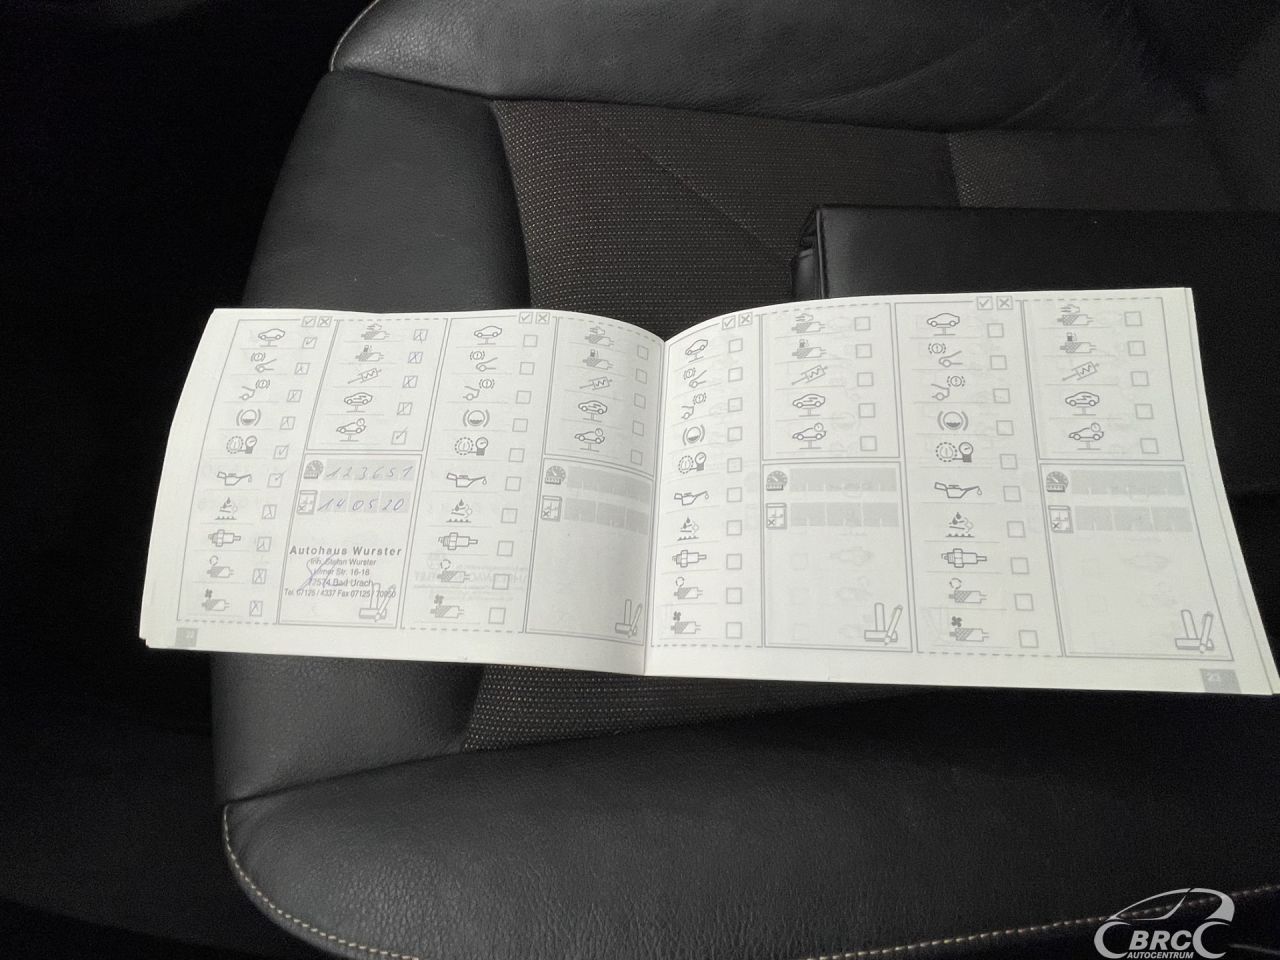 123651
140520
Autohaus Wurster
Inh. Stefan Wurster
Ulmer Str. 16-18
72574 Bad Urach
Tel. 07125 / 4337 Fax 07125 / 70950
22
23
BRC
AUTOCENTRUM